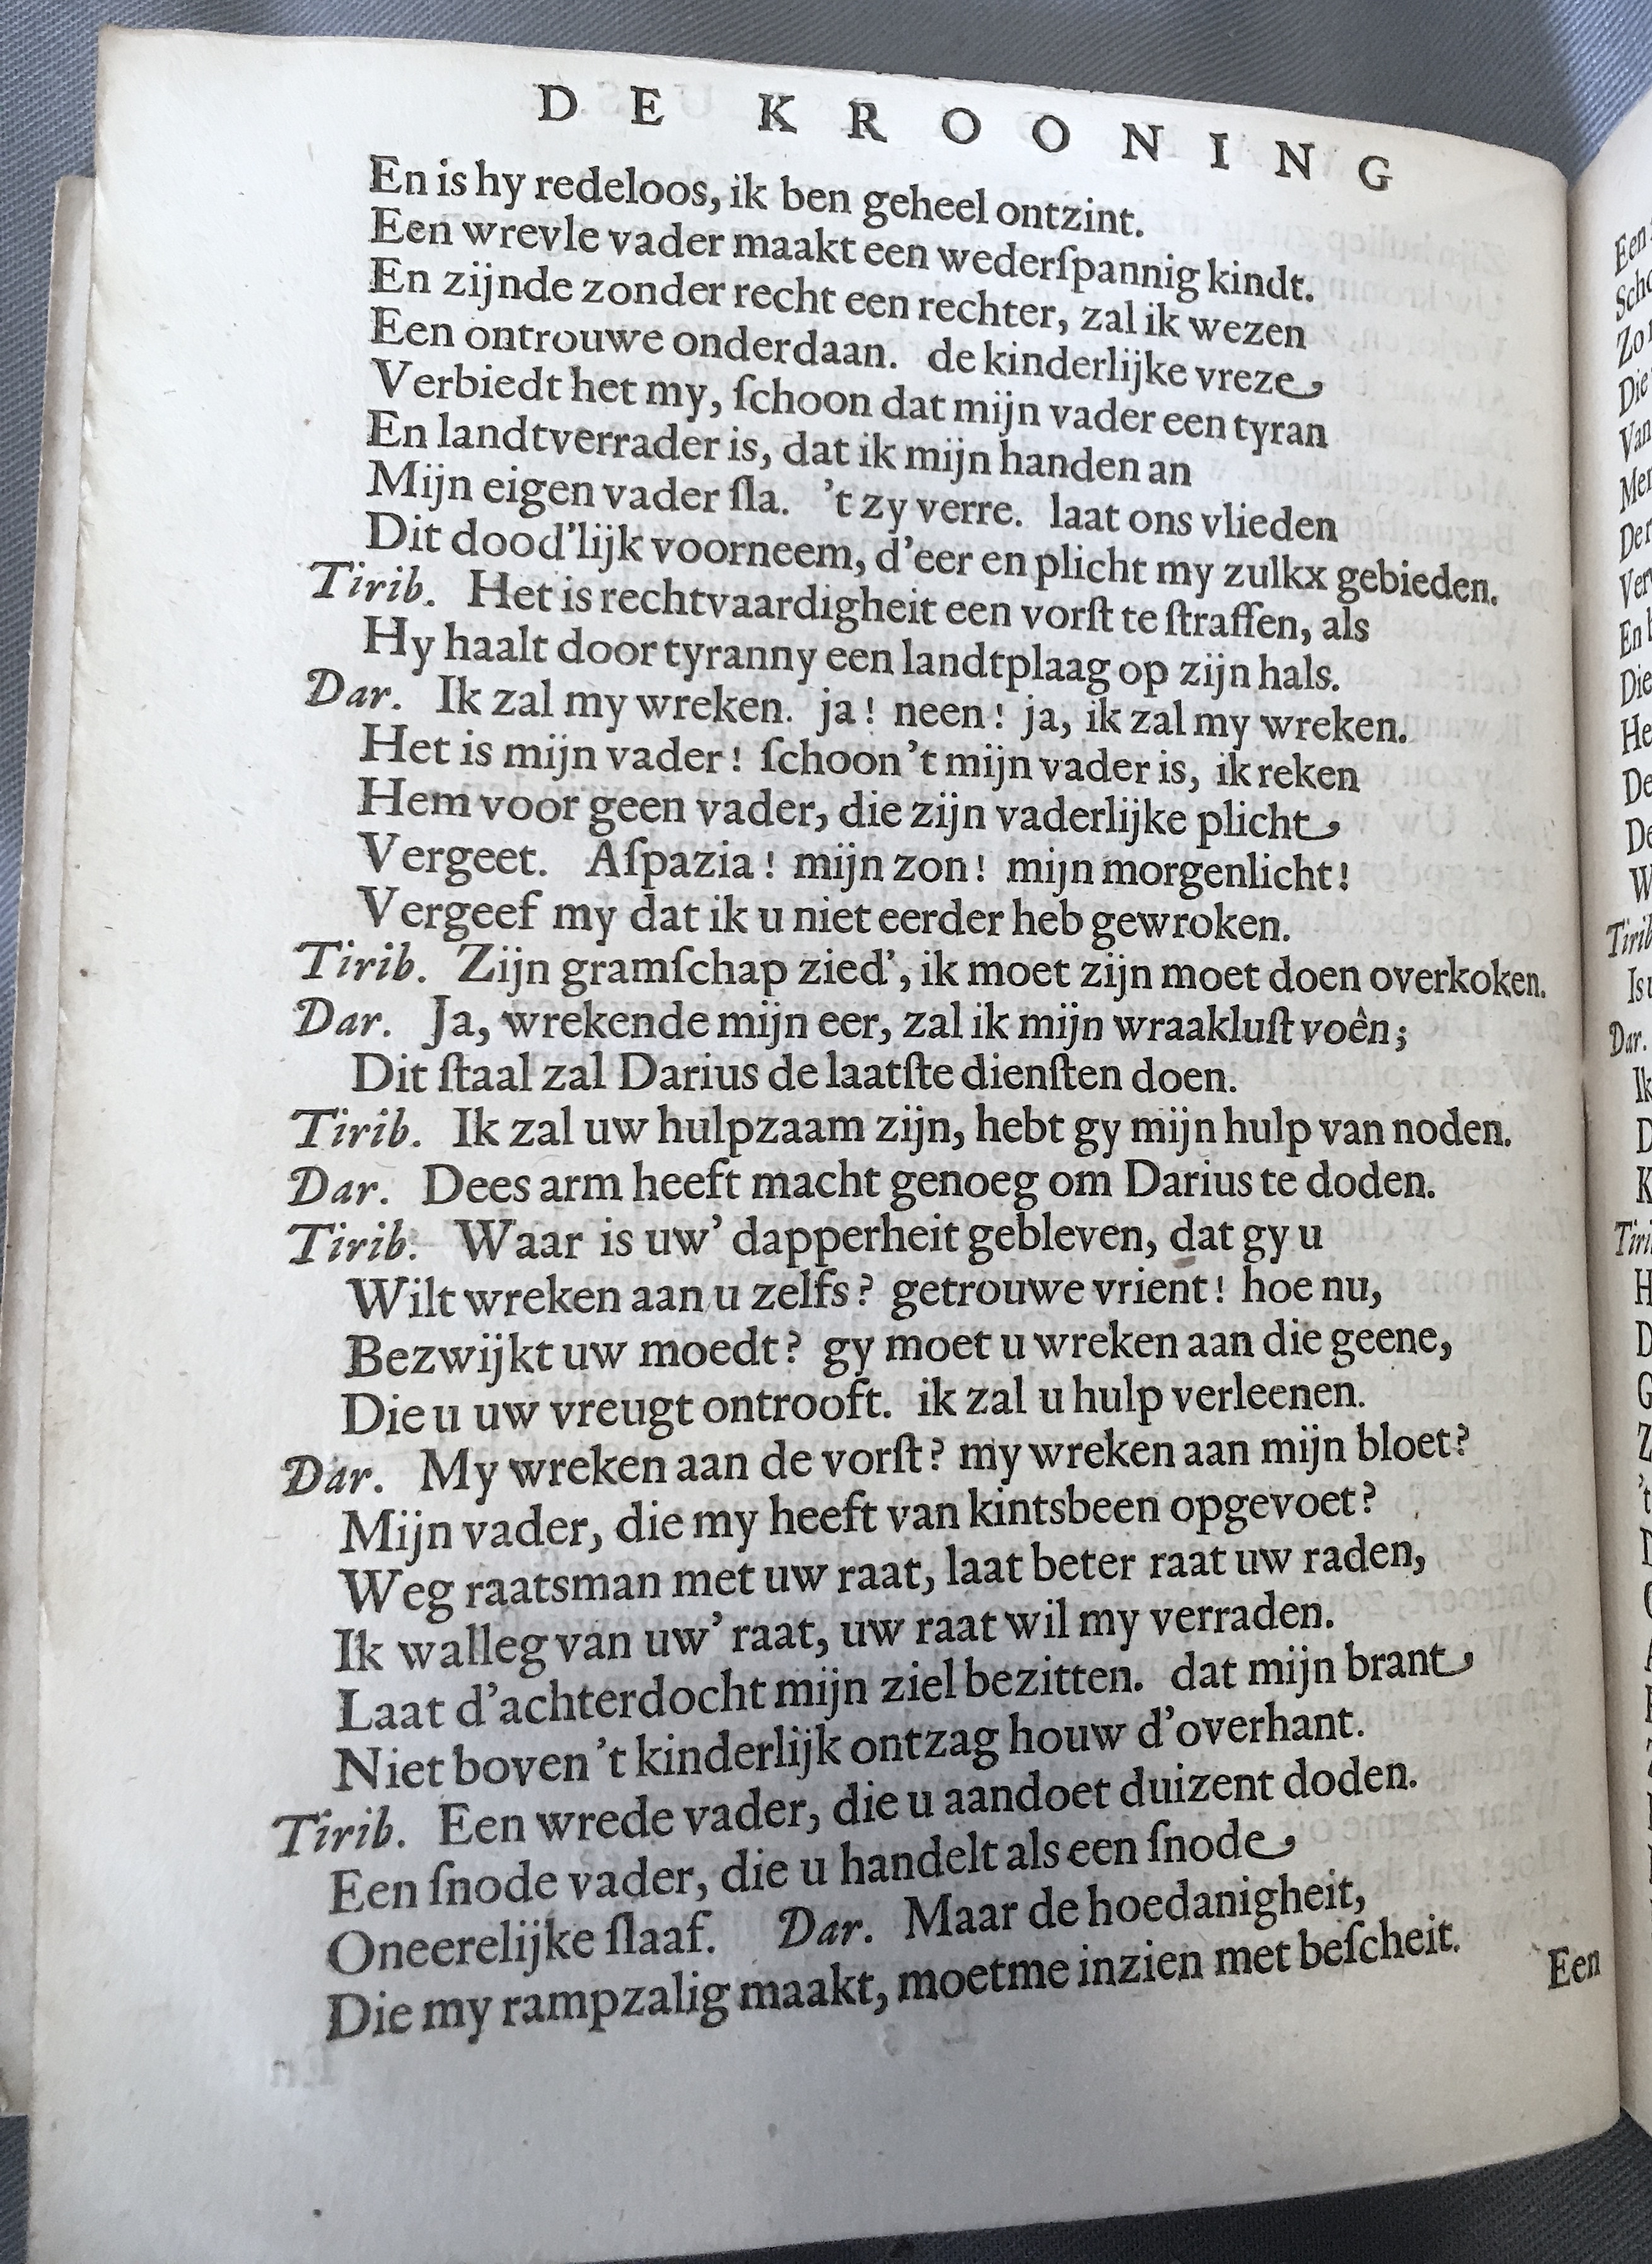 DE KROONING
En is hy redeloos, ik ben geheel ontzint.
Een wrevle vader maakt een wederſpannig kindt.
En zijnde zonder recht een rechter, zal ik wezen
Een ontrouwe onderdaan. de kinderlijke vreze
Verbiedt het my, ſchoon dat mijn vader een tyran
En landtverrader is, dat ik mijn handen an
Mijn eigen vader ſla. 't zy verre. laat ons vlieden
Dit dood'lijk voorneem, d'eer en plicht my zulkx gebieden.
Tirib. Het is rechtvaardigheit een vorſt te ſtraffen, als
Hy haalt door tyranny een landtplaag op zijn hals.
Dar. Ik zal my wreken. ja! neen! ja, ik zal my wreken.
Het is mijn vader! ſchoon 't mijn vader is, ik reken
Hem voor geen vader, die zijn vaderlijke plicht
Vergeet. Aſpazia! mijn zon! mijn morgenlicht!
Vergeef my dat ik u niet eerder heb gewroken.
Tirib. Zijn gramſchap zied', ik moet zijn moet doen overkoken.
Dar. Ja, wrekende mijn eer, zal ik mijn wraakluſt voên;
Dit ſtaal zal Darius de laatſte dienſten doen.
Tirib. Ik zal uw hulpzaam zijn, hebt gy mijn hulp van noden.
Dar. Dees arm heeft macht genoeg om Darius te doden.
Tirib. Waar is uw' dapperheit gebleven, dat gy u
Wilt wreken aan u zelfs? getrouwe vrient! hoe nu,
Bezwijkt uw moedt? gy moet u wreken aan die geene,
Die u uw vreugt ontrooft. ik zal u hulp verleenen.
Dar. My wreken aan de vorſt? my wreken aan mijn bloet?
Mijn vader, die my heeft van kintsbeen opgevoet?
Weg raatsman met uw raat, laat beter raat uw raden,
Ik walleg van uw' raat, uw raat wil my verraden.
Laat d'achterdocht mijn ziel bezitten. dat mijn brant
Niet boven 't kinderlijk ontzag houw d'overhant.
Tirib. Een wrede vader, die u aandoet duizent doden.
Een ſnode vader, die u handelt als een ſnode
Oneerelijke ſlaaf. Dar. Maar de hoedanigheit,
Die my rampzalig maakt, moetme inzien met beſcheit.
Een